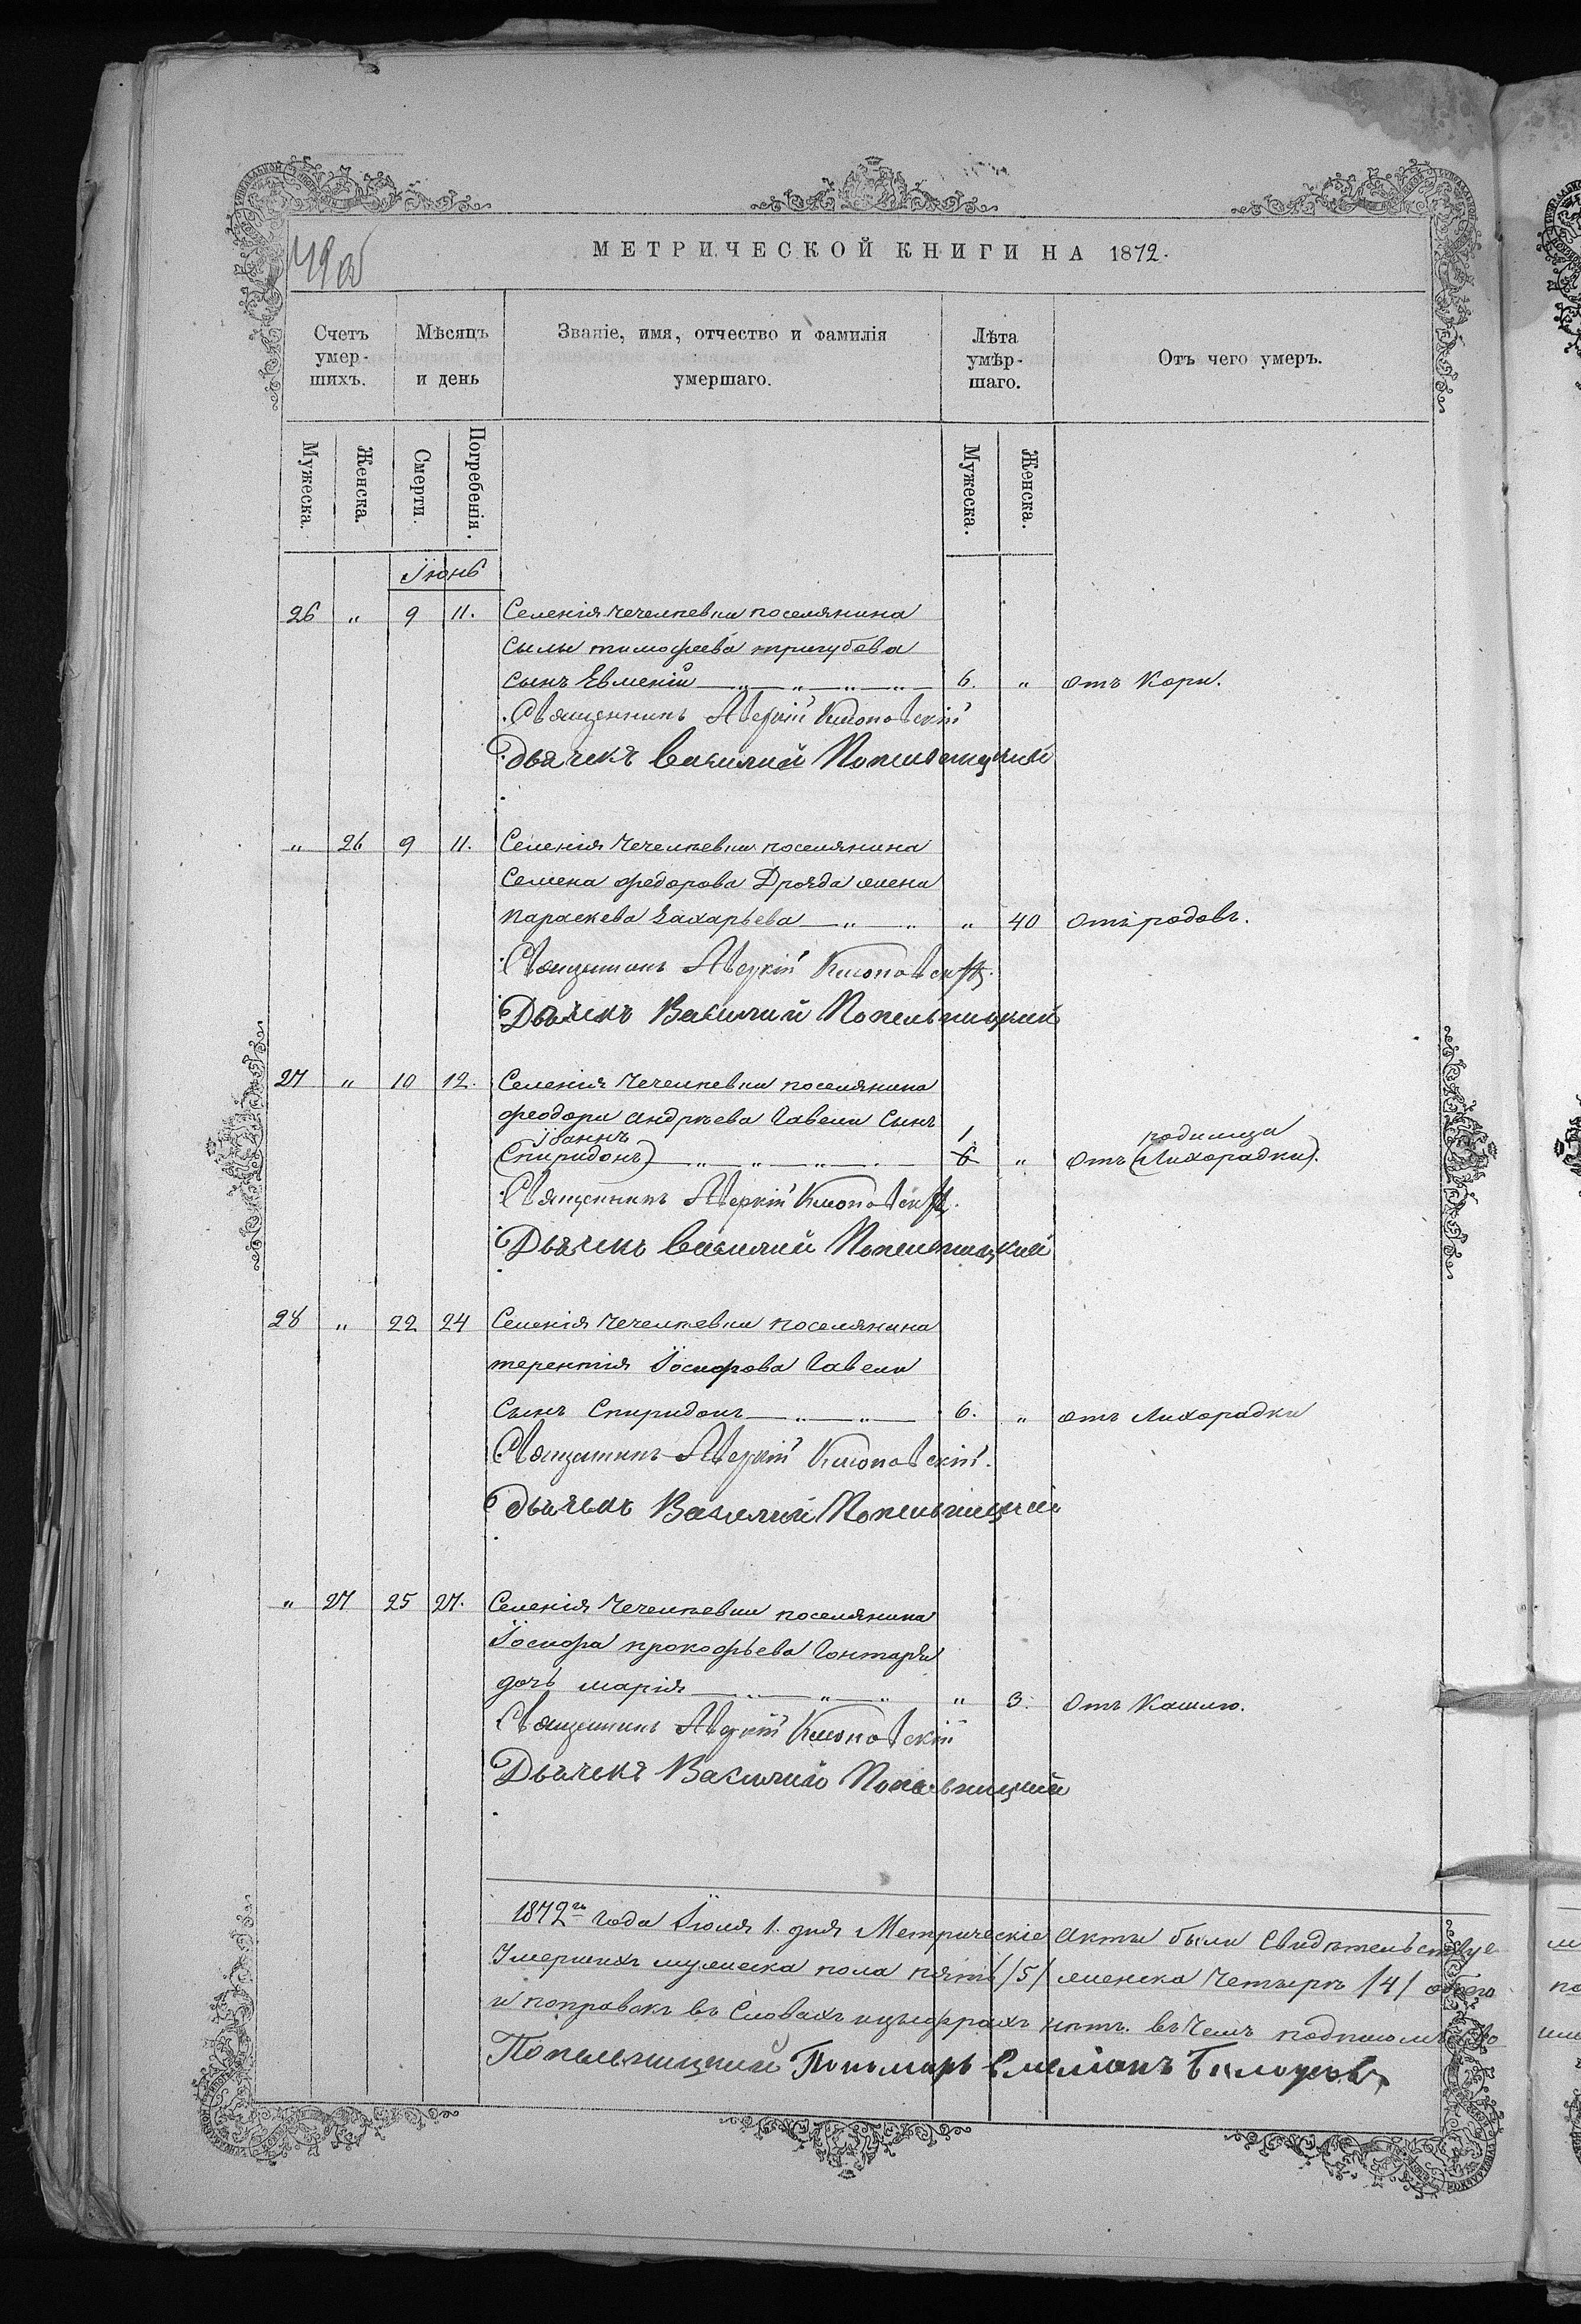 49 об
МЕТРИЧЕСКОЙ КНИГИ НА 1872.
Счетъ умер-шихъ.
Мѣсяцъ и день
Званіе, имя, отчество и фамилія умершаго.
Лѣта умѣр-шаго.
Отъ чего умеръ.
Мужеска.
Женска.
Смерти.
Погребенія.
Мужеска.
Женска.
Іюнь
26 " 9 11. Селенія Чечелневки поселянина
Силы тимофеева тригубова
сынъ Евменій — " — " — " — " — 6. " отъ Кори.
Священникъ Аверкій Клоповскій
Дьячекъ Василий Попельницкий
" 26 9 11. Селенія Чечелневки поселянина
Семена федорова Дрозда жена
параскева Захарьева — " — " " 40 Отъ родовъ.
Священникъ Аверкій Клоповскій.
Дьячекъ Василий Попельницкий
27 " 10 12. Селенія Чечелневки поселянина
феодори андрѣева Гавели Сынъ
Іоаннъ 1. родимца
(Спиридонъ) — " — " — " — 6 " Отъ (Лихорадки).
Священникъ Аверкій Клоповскій.
Дьячекъ Василий Попельницкий
28 " 22 24 Селенія Чечелневки поселянина
терентія Іосифова Гавели
Сынъ Спиридонъ — " — " — 6. " отъ Лихорадки
Священникъ Аверкій Клоповскій.
Дьячекъ Василий Попельницкий
" 27 25 27. Селенія Чечелневки поселянина
Іосифа прокофьева Гонтаря
дочь марія — " — " — " " 3. Отъ Кашлю.
Священникъ Аверкій Клоповскій
Дьячекъ Василий Попельницкий
1872го года Іюля 1. дня Метрическіе Акты были Свидѣтельствуе
Умершихъ мужеска пола пять /5/ женска Четыре /4/ обоего
и поправокъ въ Словахъ и цыфрахъ нѣтъ. въ Чемъ подписомъ
Попельницкий Пономарь Емеліанъ